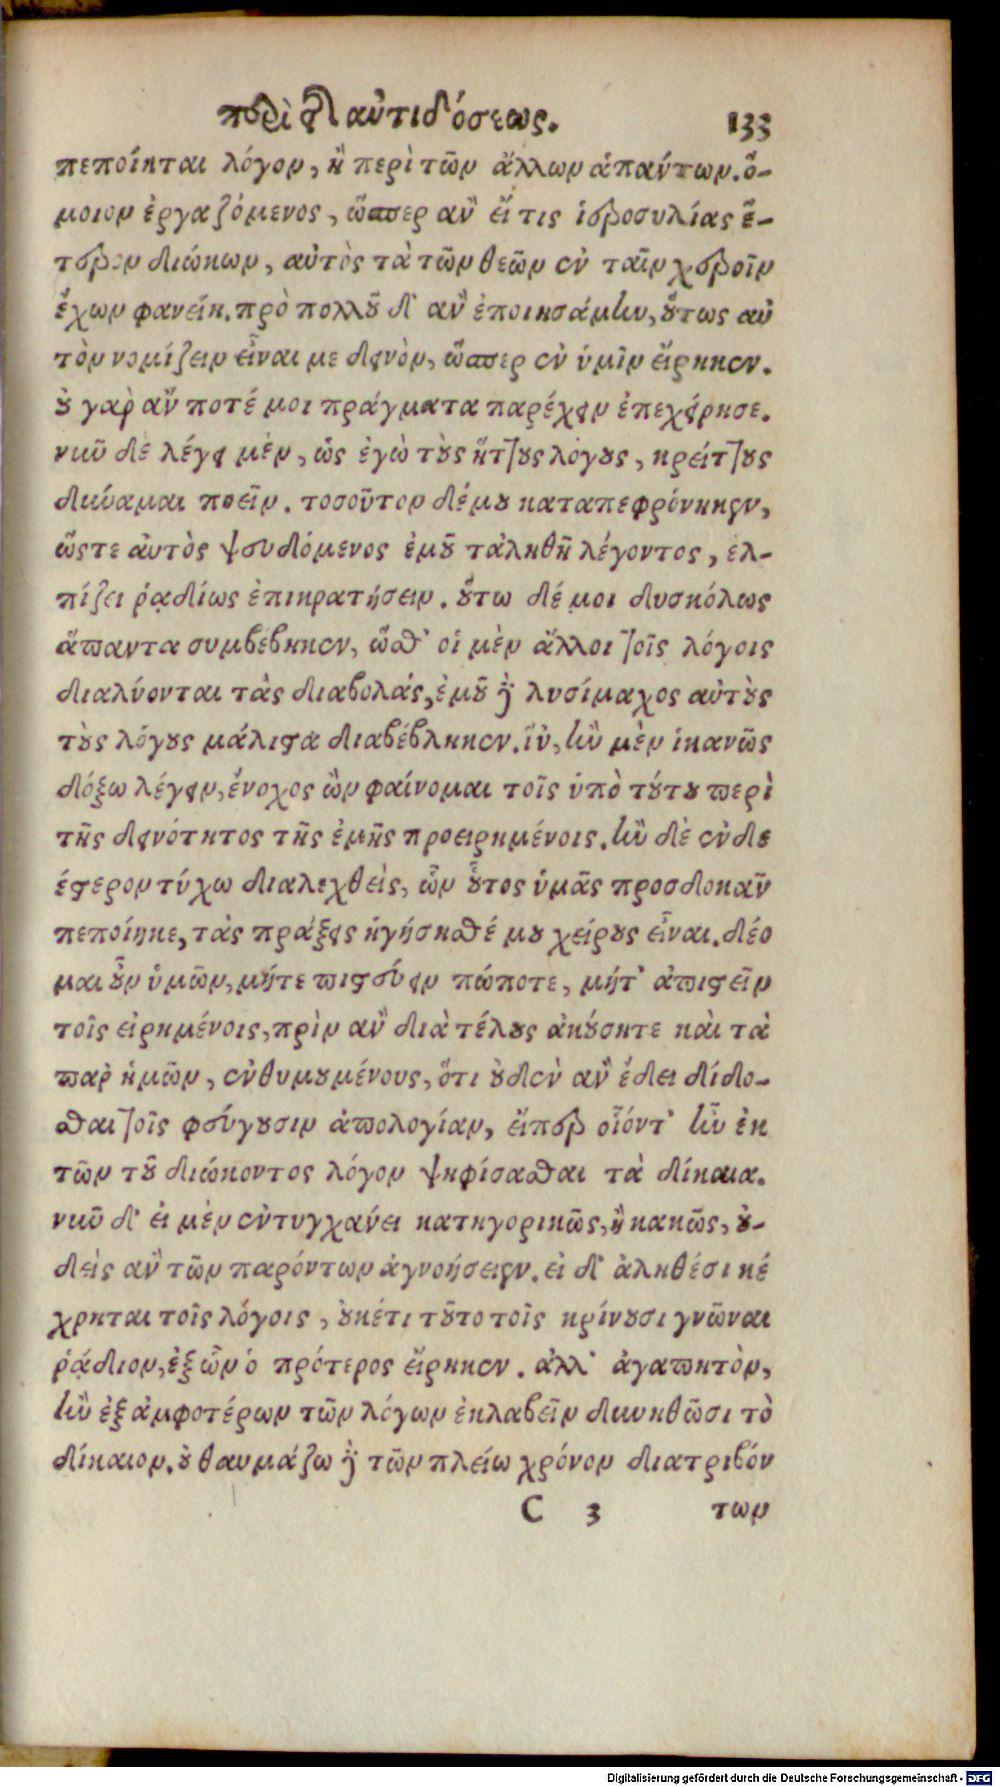 περὶ τῆς ἀντιδόσεως. 133
πεποίηται λόγον, ἢ περὶ τῶν ἄλλων ἁπάντων. ὅ-
μοιον ἐργαζόμενος, ὥσπερ ἂν εἴ τις ἱεροσυλίας ἕ-
τερον διώκων, αὐτὸς τὰ τῶν θεῶν ἐν ταῖν χεροῖν
ἔχων φανείη. πρὸ πολλοῦ δ' ἂν ἐποιησάμην, οὕτως αὐ
τὸν νομίζειν εἶναι με δεινὸν, ὥσπερ ἐν ὑμῖν εἴρηκεν.
οὐ γὰρ ἄν ποτέ μοι πράγματα παρέχειν ἐπεχείρησε.
νῦν δὲ λέγει μὲν, ὡς ἐγὼ τοὺς ἥττους λόγους, κρείττους
δύναμαι ποιεῖν. τοσοῦτον δέ μου καταπεφρόνηκεν,
ὥστε αὐτὸς ψευδόμενος ἐμοῦ τἀληθῆ λέγοντος, ἐλ-
πίζει ῥᾳδίως ἐπικρατήσειν. οὕτω δέ μοι δυσκόλως
ἅπαντα συμβέβηκεν, ὥσθ' οἱ μὲν ἄλλοι τοῖς λόγοις
διαλύονται τὰς διαβολάς, ἐμοῦ δὲ λυσίμαχος αὐτοὺς
τοὺς λόγους μάλιστα διαβέβληκεν. ἵν, ἢν μὲν ἱκανῶς
δόξω λέγειν, ἔνοχος ὢν φαίνομαι τοῖς ὑπὸ τούτου περὶ
τῆς δεινότητος τῆς ἐμῆς προειρημένοις. ἢν δὲ ἐνδε
έστερον τύχω διαλεχθεὶς, ὧν οὗτος ὑμᾶς προσδοκᾶν
πεποίηκε, τὰς πράξεις ἡγήσησθέ μου χείρους εἶναι. δέο
μαι οὖν ὑμῶν, μήτε πιστεύειν πώποτε, μήτ' ἀπιστεῖν
τοῖς εἰρημένοις, πρὶν ἂν διὰ τέλους ἀκούσητε καὶ τὰ
παρ' ἡμῶν, ἐνθυμουμένους, ὅτι οὐδὲν ἂν ἔδει δίδο-
σθαι τοῖς φεύγουσιν ἀπολογίαν, εἴπερ οἷόντ' ἦν ἐκ
τῶν τοῦ διώκοντος λόγον ψηφίσασθαι τὰ δίκαια.
νῦν δ' εἰ μὲν ἐντυγχάνει κατηγορικῶς, ἢ κακῶς, οὐ-
δεὶς ἂν τῶν παρόντων ἀγνοήσειεν. εἰ δ' ἀληθέσι κέ
χρηται τοῖς λόγοις, οὐκέτι τοῦτο τοῖς κρίνουσι γνῶναι
ῥᾴδιον, ἐξ ὧν ὁ πρότερος εἴρηκεν. ἀλλ' ἀγαπητὸν,
ἢν ἐξ ἀμφοτέρων τῶν λόγων ἐκλαβεῖν δυνηθῶσι τὸ
δίκαιον. οὐ θαυμάζω δὲ τῶν πλείω χρόνον διατριβόν
C 3 των
Digitalisierung gefördert durch die Deutsche Forschungsgemeinschaft - DFG